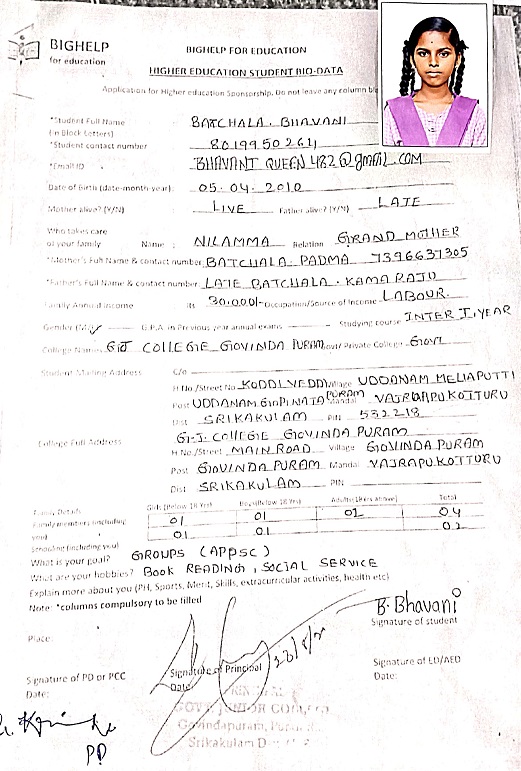 BIGHELP
for education
BIGHELP FOR EDUCATION
HIGHER EDUCATION STUDENT BIO-DATA
Application for Higher education Sponsorship. Do not leave any column
*Student Full Name BATCHALA. BHAVANI
(in Block Letters)
*Student contact number 8019950261
*Email ID BHAVANI QUEEN 482@gmail.COM
Date of Birth (date-month-year) 05.04.2010
Mother alive? (Y/N) LIVE Father alive? (Y/N) LATE
Who takes care
of your family Name: NILAMMA Relation GRAND MOTHER
*Mother's Full Name & contact number BATCHALA PADMA 7396637305
*Father's Full Name & contact number LATE BATCHALA. KAMA RAJU
Family Annual income Rs 30,000/- Occupation/Source of Income LABOUR.
Gender G.P.A. in Previous year annual exams Studying course INTER I YEAR
College Name GJ COLLEGE GOVINDA PURAM Govt/ Private College GOVT
Student Mailing Address C/o
H.No/Street No Village UDDANAM MELIAPUTTI
Post UDDANAM GOPINATA PURAM Mandal VAJRAPUKOTTURU
Dist SRIKAKULAM PIN 532218
College Full Address G.J. COLLEGE GOVINDA PURAM
H.No/Street MAIN ROAD Village GOVINDA PURAM
Post GOVINDA PURAM Mandal VAJRAPUKOTTURU
Dist SRIKAKULAM PIN
Family Details Girls (Below 18 Yrs) Boys(Below 18 Yrs) Adults(18Yrs above) Total
Family members (including you) 01 01 02 04
Schooling (including you) 01 01 02
What is your goal? GROUPS (APPSC)
What are your hobbies? BOOK READING, SOCIAL SERVICE
Explain more about you (PH, Sports, Merit, Skills, extracurricular activities, health etc)
Note: *columns compulsory to be filled
B. Bhavani
Signature of student
Place:
Signature of PD or PCC
Date:
Signature of Principal
Date
Signature of ED/AED
Date:
GOVT JUNIOR
Govindapuram,
Srikakulam
PD